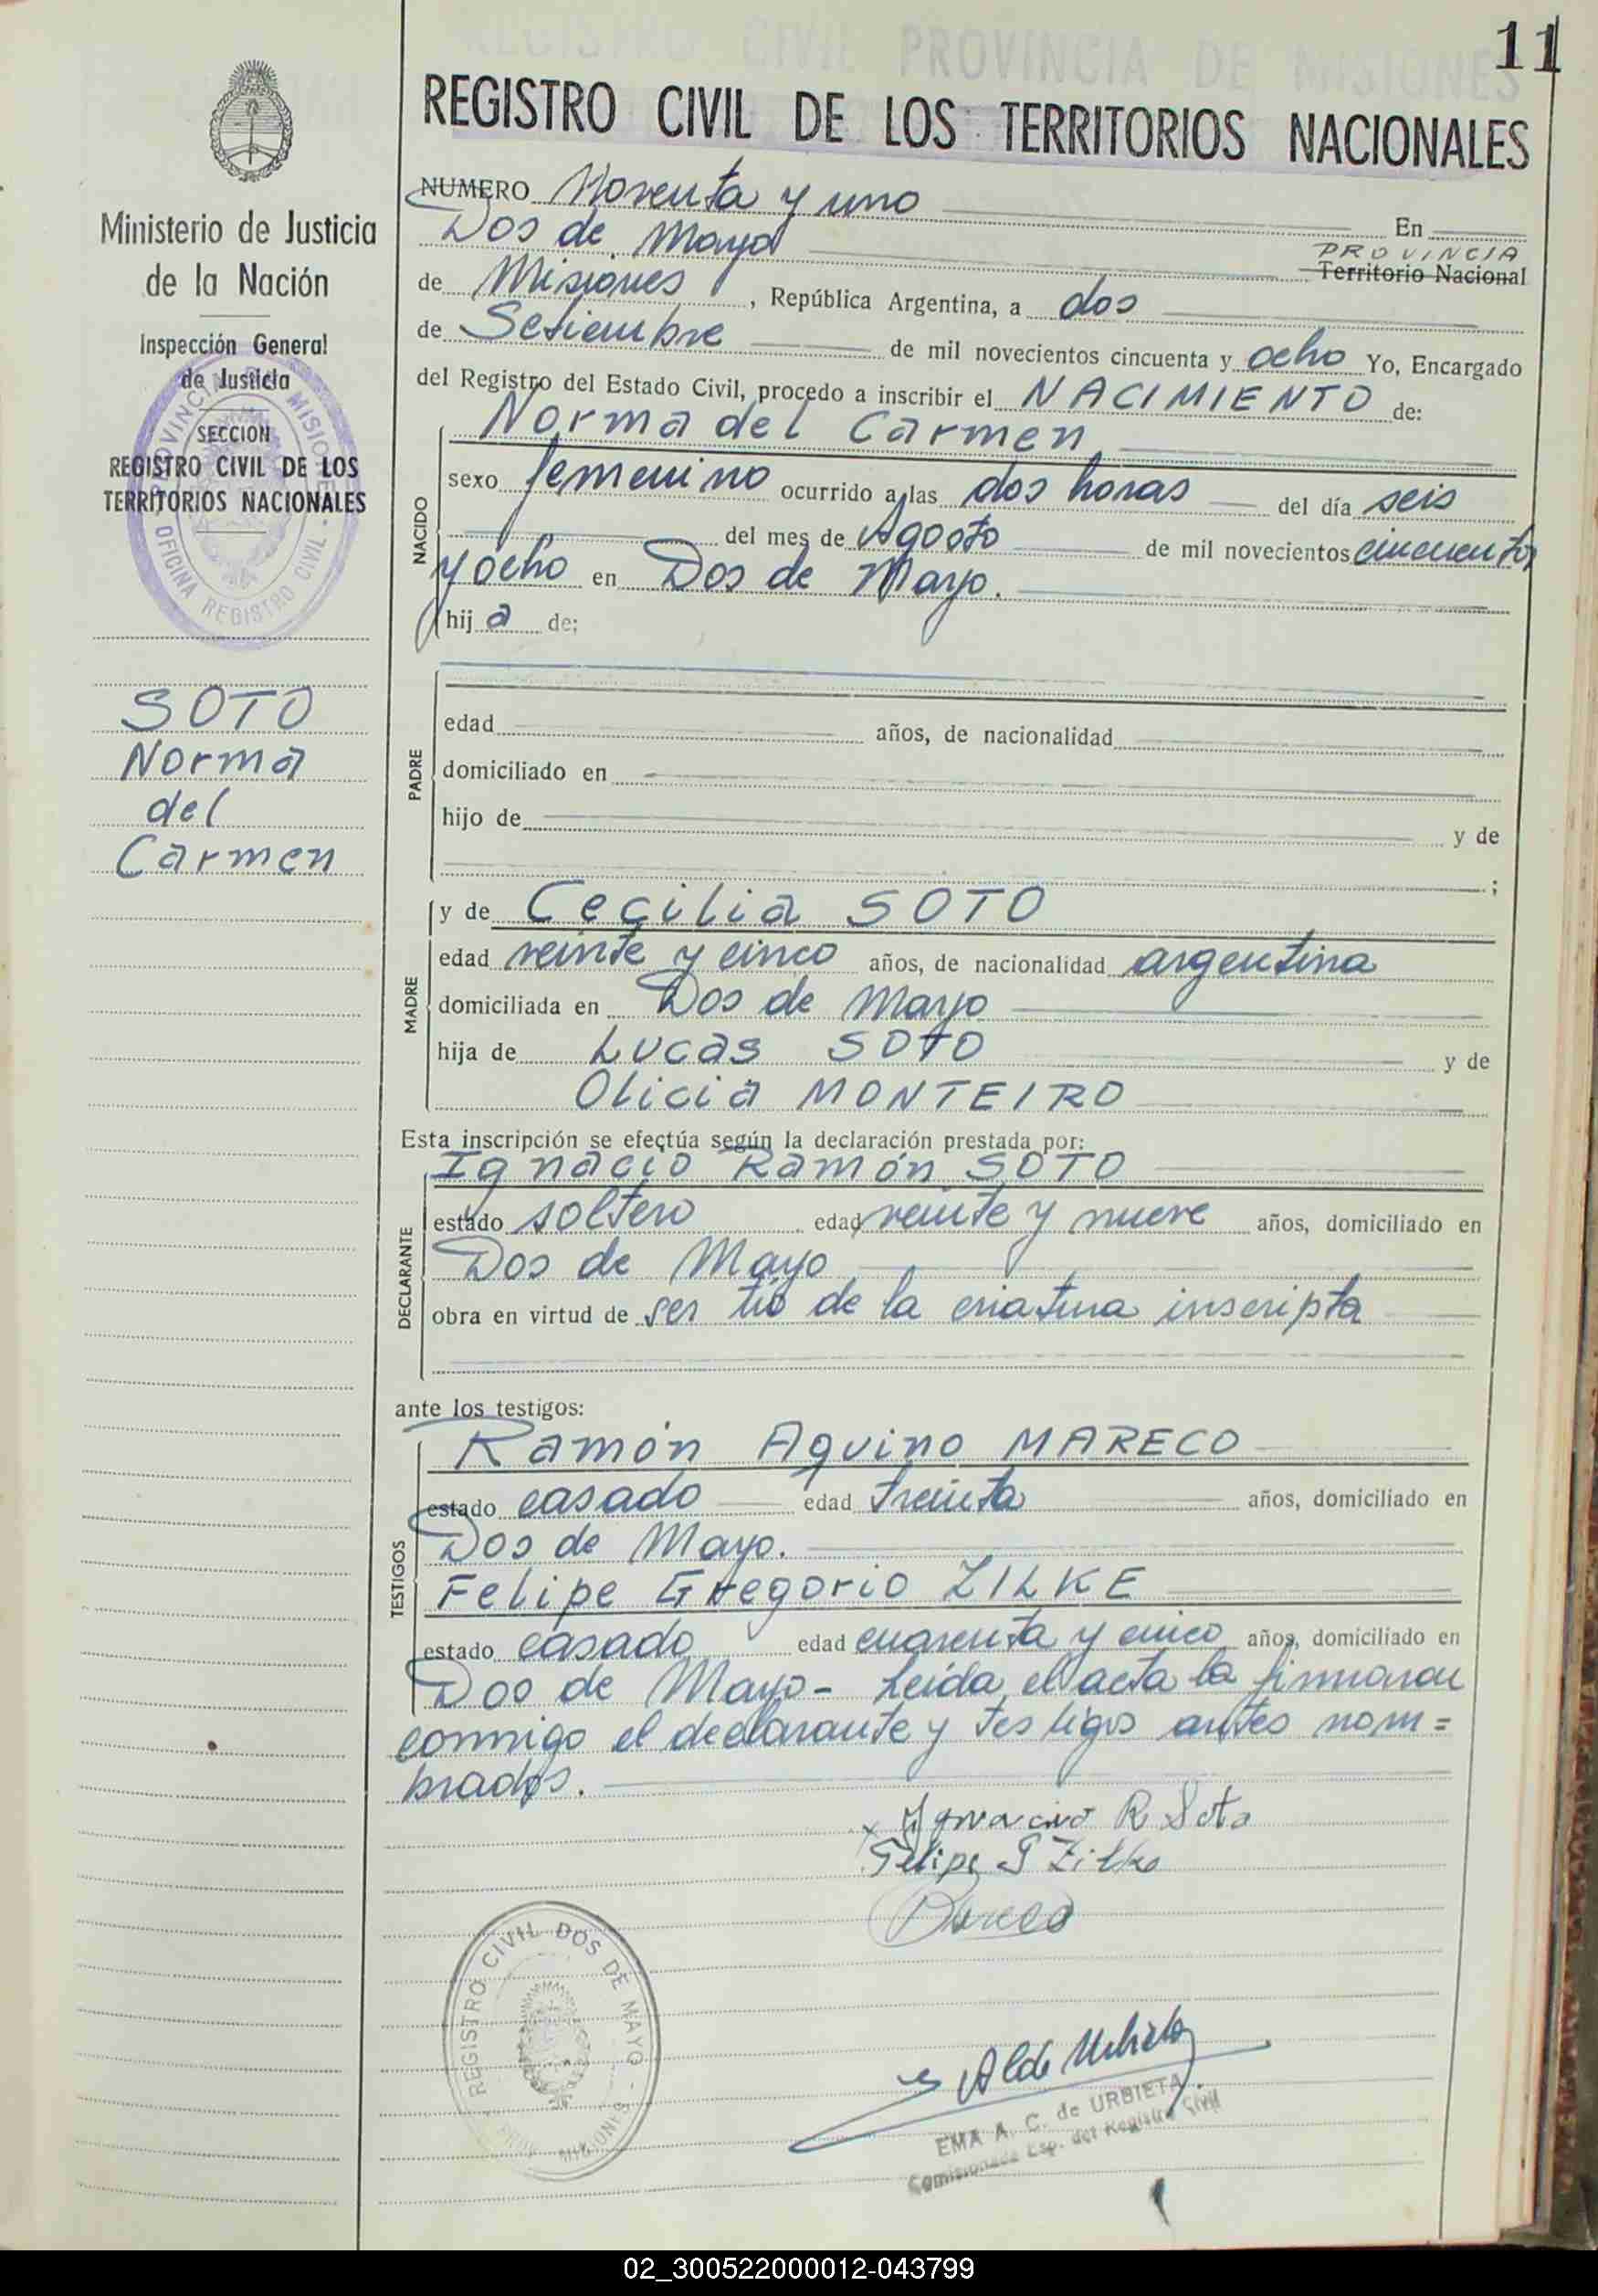 11
REGISTRO CIVIL DE LOS TERRITORIOS NACIONALES
Ministerio de Justicia
de la Nación
Inspección General
de Justicia
SECCION
REGISTRO CIVIL DE LOS
TERRITORIOS NACIONALES
PROVINCIA DE MISIONES - OFICINA REGISTRO CIVIL -
SOTO
Norma
del
Carmen
NUMERO Noventa y uno En
Dos de Mayo PROVINCIA
Territorio Nacional
de Misiones, República Argentina, a dos
de Setiembre de mil novecientos cincuenta y ocho Yo, Encargado
del Registro del Estado Civil, procedo a inscribir el NACIMIENTO de:
NACIDO
Norma del Carmen
sexo femenino ocurrido a las dos horas del día seis
del mes de Agosto de mil novecientos cincuenta
y ocho en Dos de Mayo.
hija de:
PADRE
edad años, de nacionalidad
domiciliado en
hijo de y de
;
MADRE
y de Cecilia SOTO
edad veinte y cinco años, de nacionalidad argentina
domiciliada en Dos de Mayo
hija de Lucas SOTO y de
Olicia MONTEIRO
Esta inscripción se efectúa según la declaración prestada por:
DECLARANTE
Ignacio Ramón SOTO
estado soltero edad veinte y nueve años, domiciliado en
Dos de Mayo
obra en virtud de ser tío de la criatura inscripta
ante los testigos:
TESTIGOS
Ramón Aquino MARECO
estado casado edad treinta años, domiciliado en
Dos de Mayo.
Felipe Gregorio ZILKE
estado casado edad cuarenta y cinco años, domiciliado en
Dos de Mayo- Leída el acta la firmaron
conmigo el declarante y testigos antes nom=
brados.
x Ignacio R Soto
Felipe G Zilke
Mareco
REGISTRO CIVIL DOS DE MAYO - MISIONES
EMA A. C. de URBIETA
Comisionada Esp. del Registro Civil
02_300522000012-043799